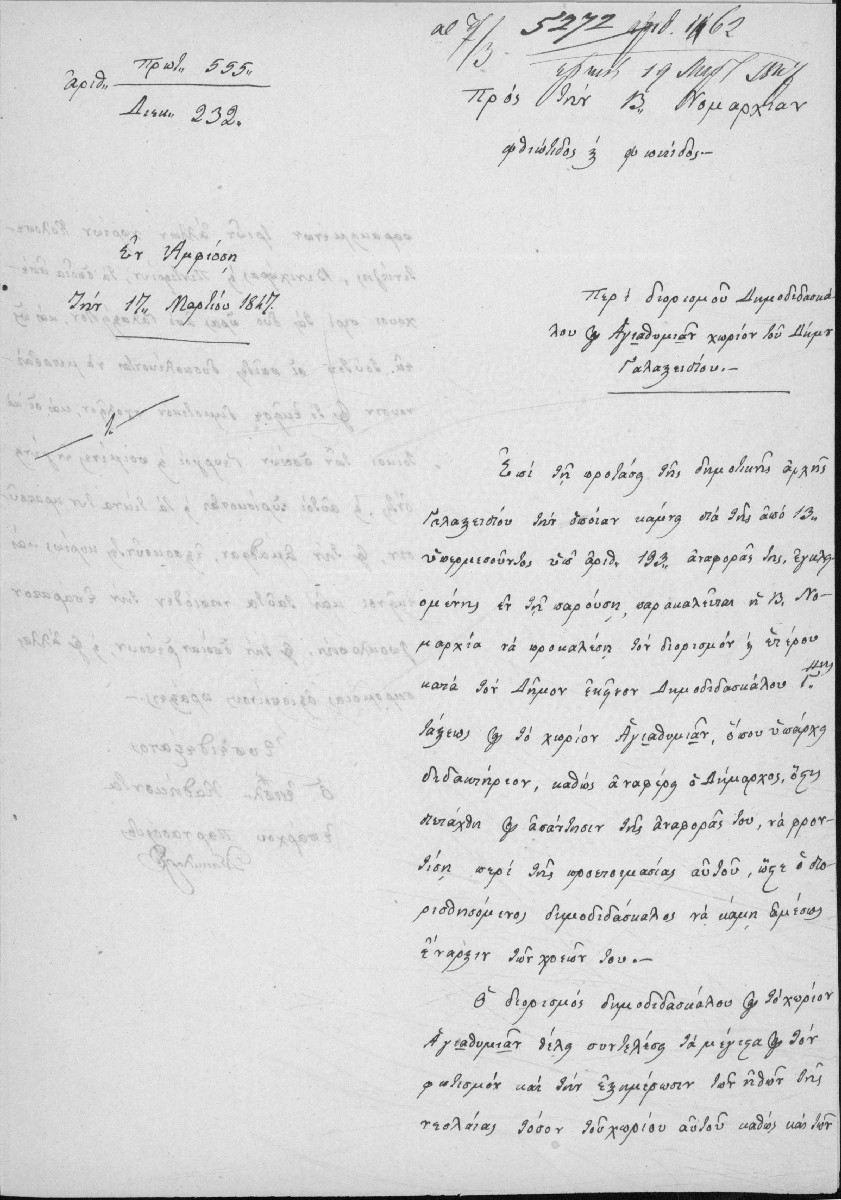 5272
ἐλήφθη 19 Μαρτ 1847
ἀριθ. Πρωτ. 555.
Διεκ. 232.
Πρὸς τὴν Β. Νομαρχίαν
Φθιώτιδος & Φωκίδος.—
Ἐν Ἀμφίσσῃ
Τὴν 17 Μαρτίου 1847.
Περὶ διορισμοῦ Δημοδιδασκά-
λου εἰς Ἁγιαθυμιὰν χωρίον τοῦ Δήμου
Γαλαξειδίου.—
Ἐπὶ τῇ προτάσει τῆς δημοτικῆς ἀρχῆς
Γαλαξειδίου τὴν ὁποίαν κάμνει διὰ τῆς ἀπὸ 13
ὑπερμεσοῦντος ὑπ' ἀριθ. 193 ἀναφορᾶς της, ἐγκλει-
ομένης ἐν τῇ παρούσῃ, παρακαλεῖται ἡ Β. Νο-
μαρχία νὰ προκαλέσῃ τὸν διορισμὸν & ἑτέρου
κατὰ τὸν Δῆμον ἐκεῖνον Δημοδιδασκάλου Γ.ης
τάξεως εἰς τὸ χωρίον Ἁγιαθυμιὰν, ὅπου ὑπάρχει
διδακτήριον, καθὼς ἀναφέρει ὁ Δήμαρχος, ὅςις
διετάχθη εἰς ἀπάντησιν τῆς ἀναφορᾶς του, νὰ φρον-
τίσῃ περὶ τῆς προετοιμασίας αὐτοῦ, ὥςε ὁ διο-
ρισθησόμενος δημοδιδάσκαλος νὰ κάμῃ ἀμέσως
ἔναρξιν τῶν χρεῶν του.—
Ὁ διορισμὸς δημοδιδασκάλου εἰς τὸ χωρίον
Ἁγιαθυμιὰν θέλει συντελέσει τὰ μέγιςα εἰς τὸν
φωτισμὸν καὶ τὴν ἐξημέρωσιν τῶν ἠθῶν τῆς
νεολαίας τόσον τοῦ χωρίου αὐτοῦ καθὼς καὶ τῶν